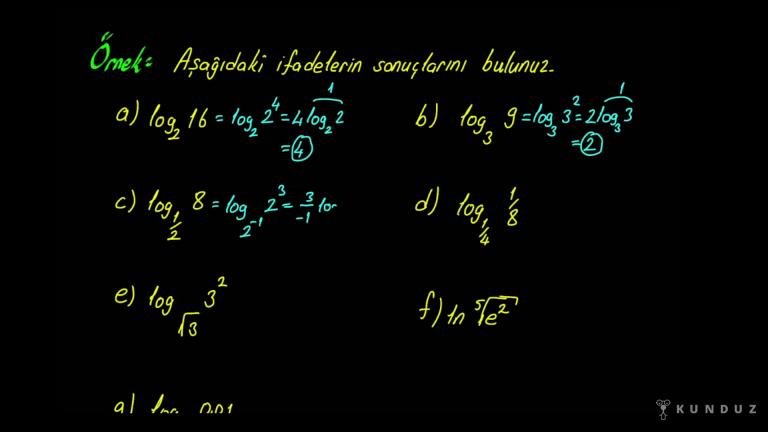 Örnek: Aşağıdaki ifadelerin sonuçlarını bulunuz.
a) log₂ 16 = log₂ 2⁴ = 4 log₂ 2 1
= 4
b) log₃ 9 = log₃ 3² = 2 log₃ 3 1
= 2
c) log_{1/2} 8 = log_{2⁻¹} 2³ = 3/-1 log
d) log_{1/4} 1/8
e) log_{√3} 3²
f) ln ⁵√e²
g) log 0,01
KUNDUZ